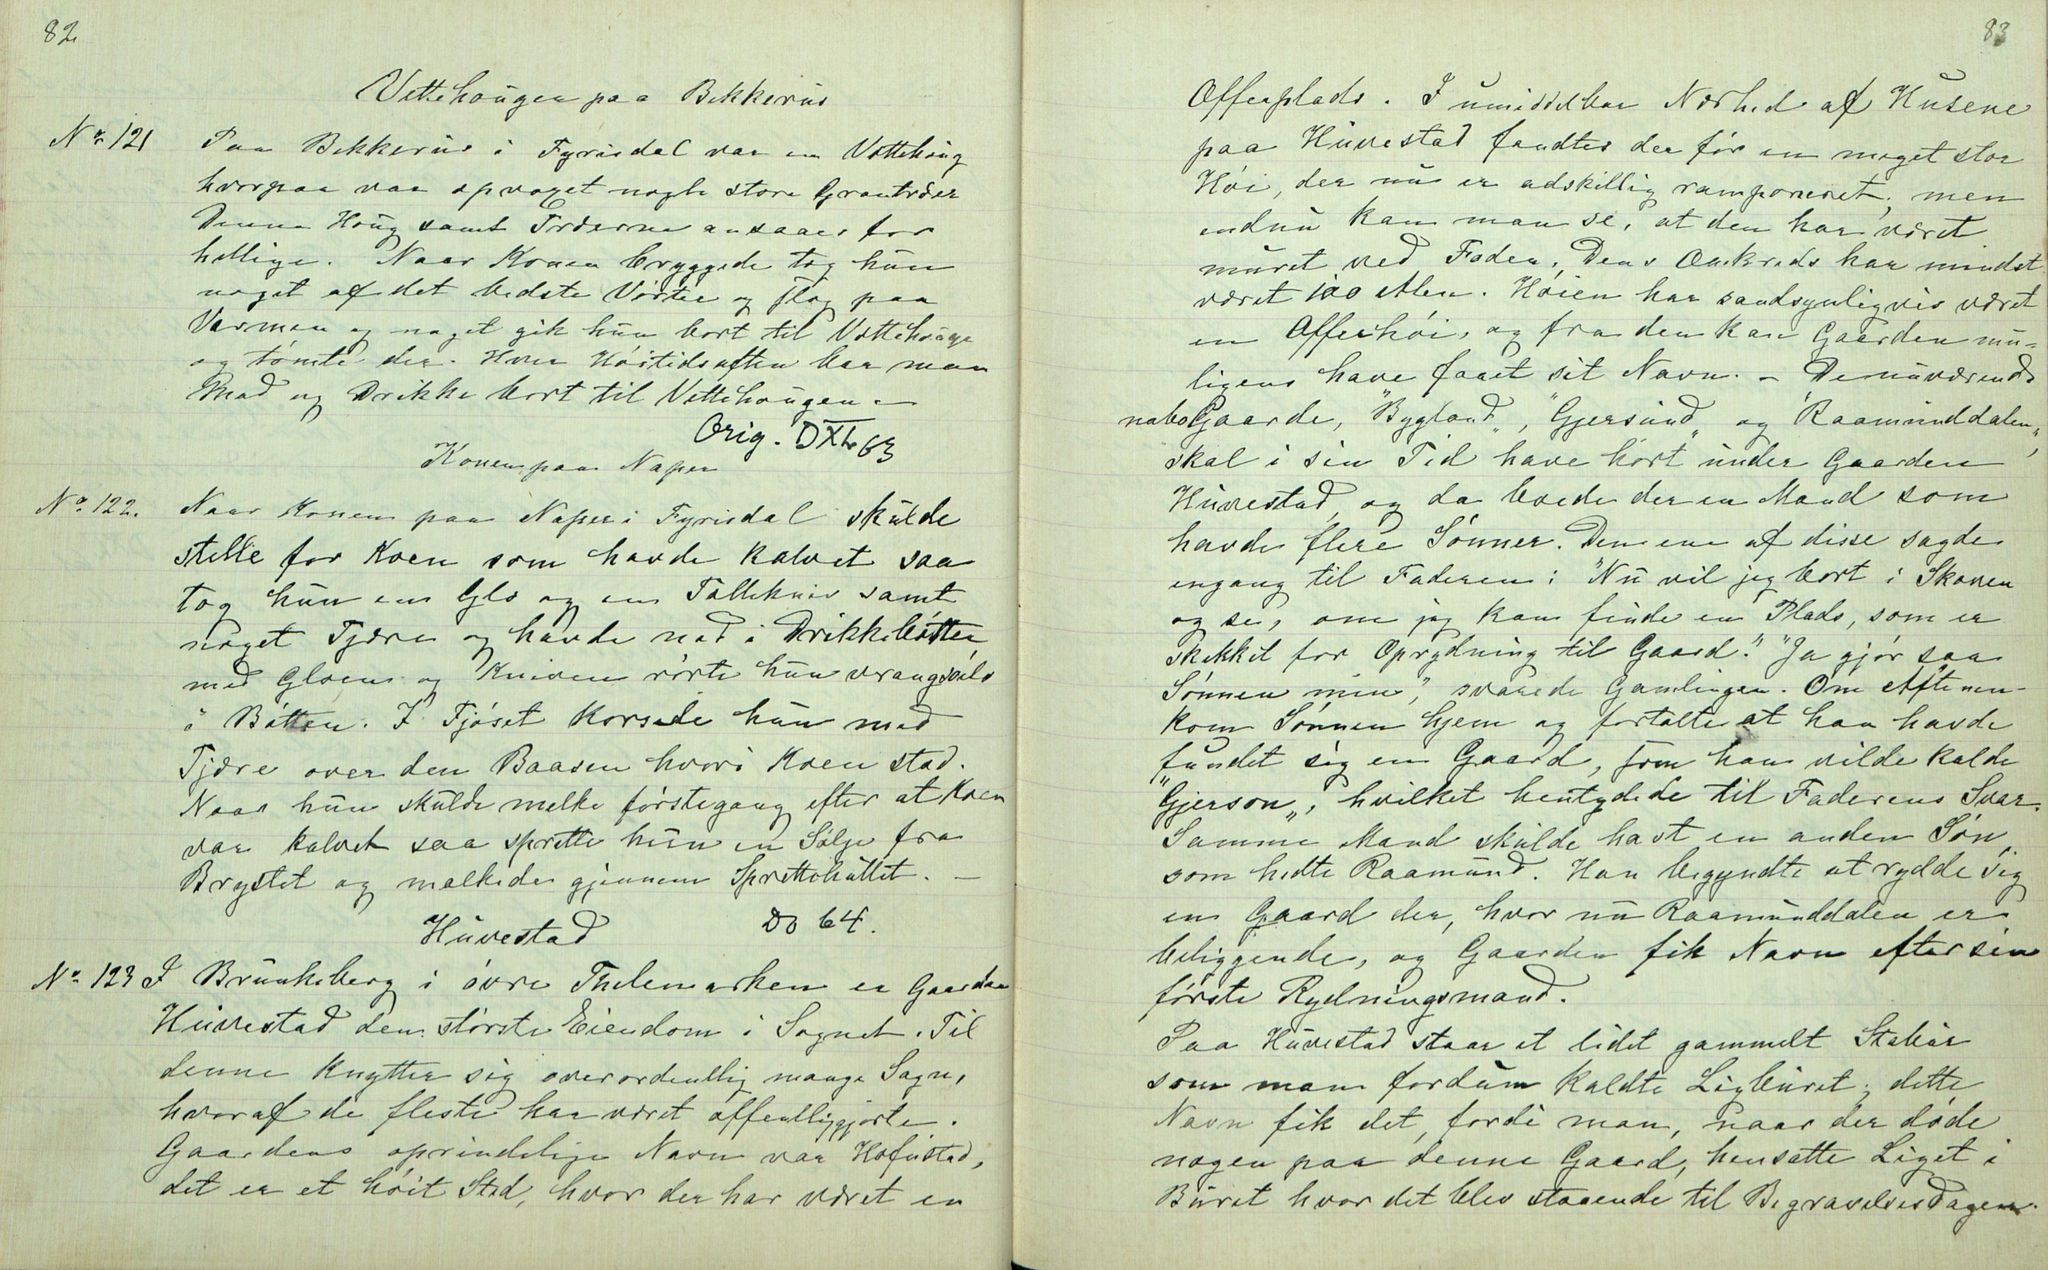 82
Vettehougen paa Bekkerus
No 121 Paa Bekkerus i Fyrisdal var en Vettehoug
hvorpaa var opvoxet nogle store Grantræer
Denne Houg samt Træerne ansaaes for
hellige. Naar Konen bryggede tog hun
noget af det bedste Vørter og slog paa
Varmen og noget gik hun bort til Vettehougen
og tømte der. Hver Høitidsaften bar man
Mad og Drikke bort til Vettehougen. –
Orig. DXL 63
Konen paa Naper
No 122. Naar Konen paa Naper i Fyrisdal skulde
stelle for Koen som havde kalvet saa
tog hun en Glo og en Tollekniv samt
noget Tjære og havde ned i Drikkebøtten
med Gloen og Kniven rørte hun vrangsøls
i Bøtten. I Fjøset korsede hun med
Tjære over den Baasen hvori Koen stod.
Naar hun skulde melke førstegang efter at Koen
var kalvet saa sprette hun en Sølje fra
Brystet og malkede gjennem Sprettehullet. –
Do 64.
Huvestad
No 123 I Brunkeberg i øvre Thelemarken er Gaarden
Huvestad den største Eiendom i Sognet. Til
denne knytter sig overordentlig mange Sagn,
hvoraf de fleste har været offentliggjorte.
Gaardens oprindelige Navn var Hofustad,
det er et høit Sted, hvor der har været en
83
Offerplads. I umiddelbar Nærhed af Husene
paa Huvestad fandtes der før en meget stor
Høi, der nu er adskillig ramponeret, men
endnu kan man se, at den har været
muret ved Foden. Dens Omkreds har mindst
været 100 Alen. Høien har sandsynligvis været
en Offerhøi, og fra den kan Gaarden mu-
ligens have faaet sit Navn. – De nuværende
naboGaarde, "Bygland", "Gjersund" og "Raamunddalen",
skal i sin Tid have hørt under Gaarden
Huvestad, og da boede der en Mand som
havde flere Sønner. Den ene af disse sagde
engang til Faderen: "Nu vil jeg bort i Skoven
og se, om jeg kan finde en Plads, som er
skikket for Oprydning til Gaard." "Ja gjør saa
Sønnen min", svarede Gamlingen. Om Aftenen
kom Sønnen hjem og fortalte at han havde
fundet sig en Gaard, som han vilde kalde
"Gjerson", hvilket hentydede til Faderens Svar.
Samme Mand skulde havt en anden Søn,
som hedte Raamund. Han begyndte at rydde sig
en Gaard der, hvor nu Raamunddalen er
beliggende, og Gaarden fik Navn efter sin
første Rydningsmand.
Paa Huvestad staar et lidet gammelt Stabur
som man fordum kaldte Ligburet; dette
Navn fik det, fordi man, naar der døde
nogen paa denne Gaard, hensatte Liget i
Buret hvor det blev staaende til Begravelsesdagen.